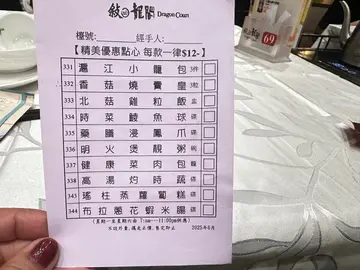 敍龍閣
Dragon Court
檯號:　　經手人:
【精美優惠點心 每款一律$12-】
331 滬江小籠包 3件
332 香菇燒賣皇 3粒
333 北菇雞粒飯 盅
334 時菜鯪魚球 碟
335 藥膳浸鳳爪 碟
336 明火煲靚粥 碗
337 健康菜肉包 籠
338 高湯灼時蔬 碟
343 瑤柱蒸蘿蔔糕 碟
344 布拉蔥花蝦米腸 碟
(星期一至星期六由 7:am---11:00pm供應)
不設外賣, 攜走正價, 售完即止 2025年6月
69